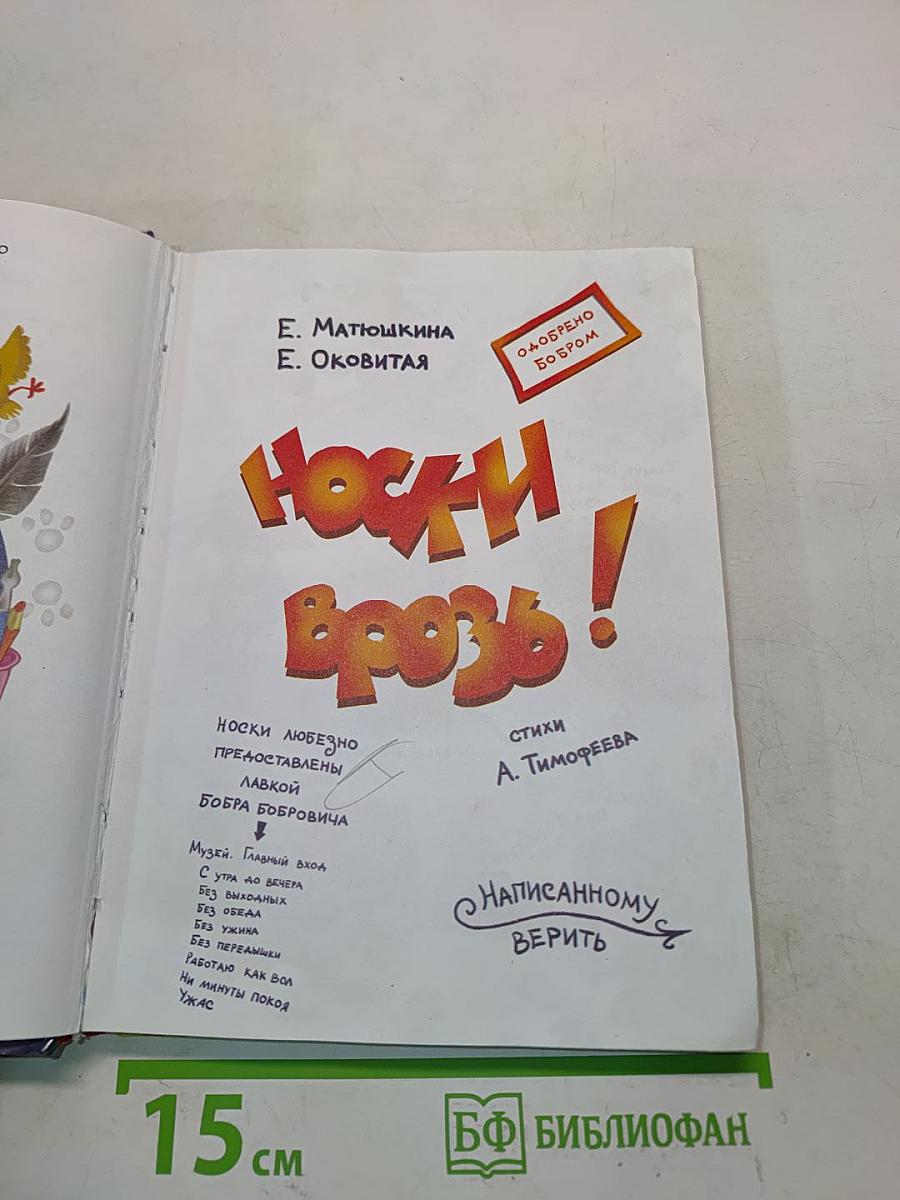 Е. Матюшкина
Е. Оковитая
ОДОБРЕНО
БОБРОМ
НОСКИ
ВРОЗЬ!
НОСКИ ЛЮБЕЗНО
ПРЕДОСТАВЛЕНЫ
ЛАВКОЙ
БОБРА БОБРОВИЧА
Музей. Главный вход
С утра до вечера
Без выходных
Без обеда
Без ужина
Без передышки
Работаю как вол
Ни минуты покоя
Ужас
СТИХИ
А. Тимофеева
НАПИСАННОМУ
ВЕРИТЬ
15 см
БФ БИБЛИОФАН